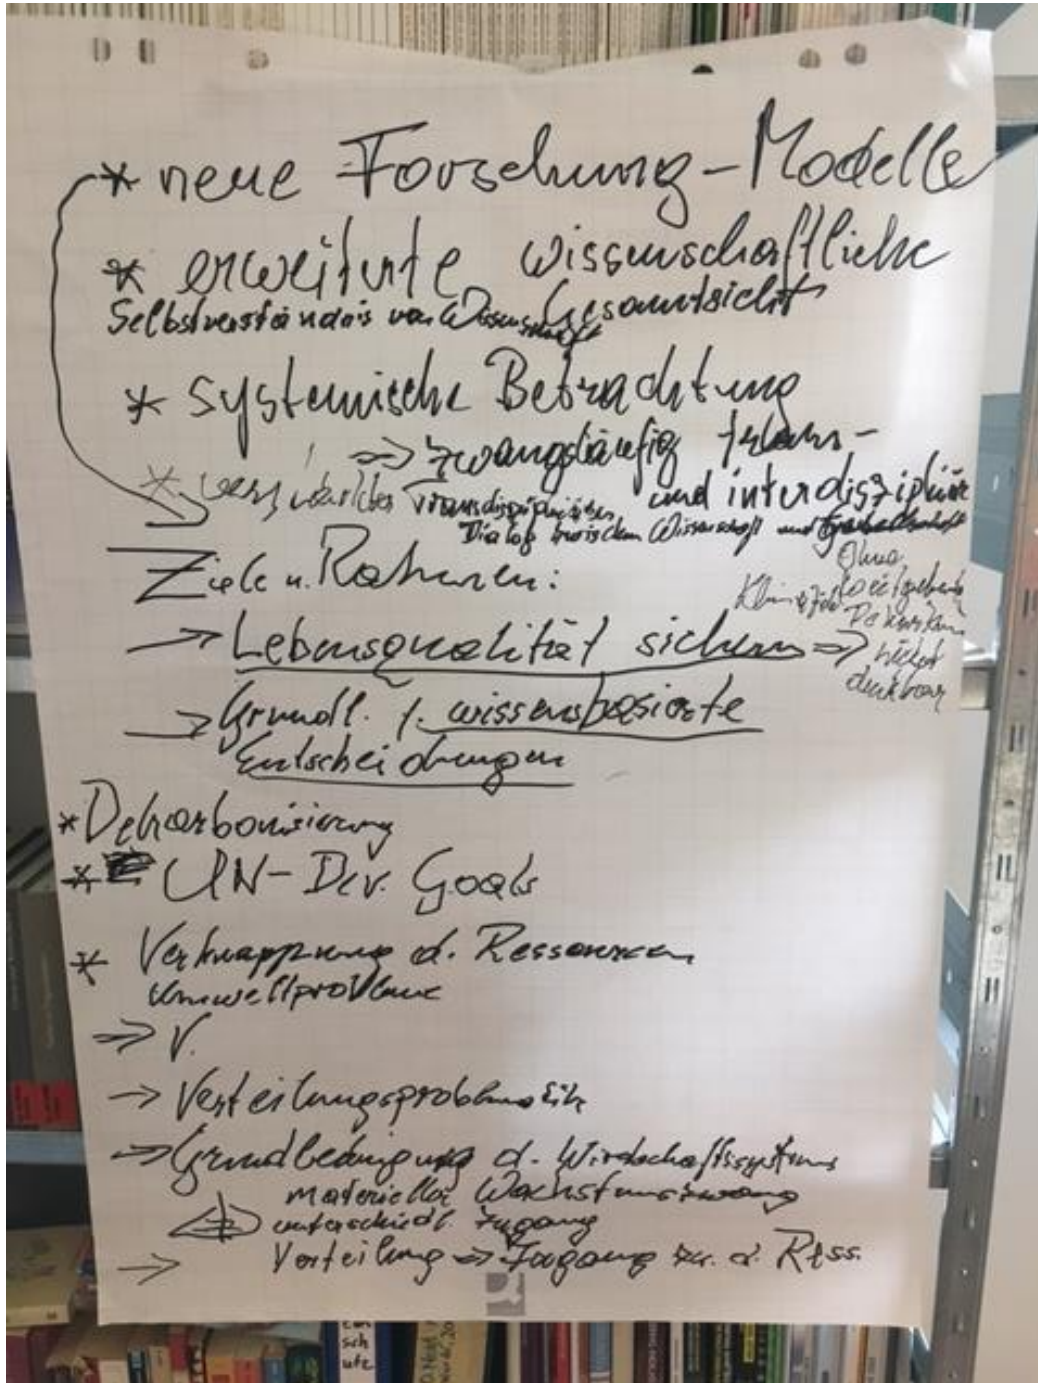 * neue Forschung-Modelle
* erweiterte wissenschaftliche
Gesamtsicht
Selbstverständnis von Wissenschaft
* systemische Betrachtung
=> zwangsläufig trans-
und interdisziplinär
* Transdisziplinärer
Dialog zwischen Wissenschaft und Gesellschaft
Ziele u. Rahmen:
-> Lebensqualität sichern =>
ohne
weitgehende
nicht
denkbar
-> Grundl. f. wissensbasierte
Entscheidungen
* Dekarbonisierung
* UN-Dev. Goals
* Verknappung d. Ressourcen
Umweltprobleme
=> V.
-> Verteilungsproblematik
-> Grundbedingung d. Wirtschaftssystems
materieller Wachstumszwang
unterschiedl. Zugang
-> Verteilung => Zugang zu d. Ress.
ein
sch
utz